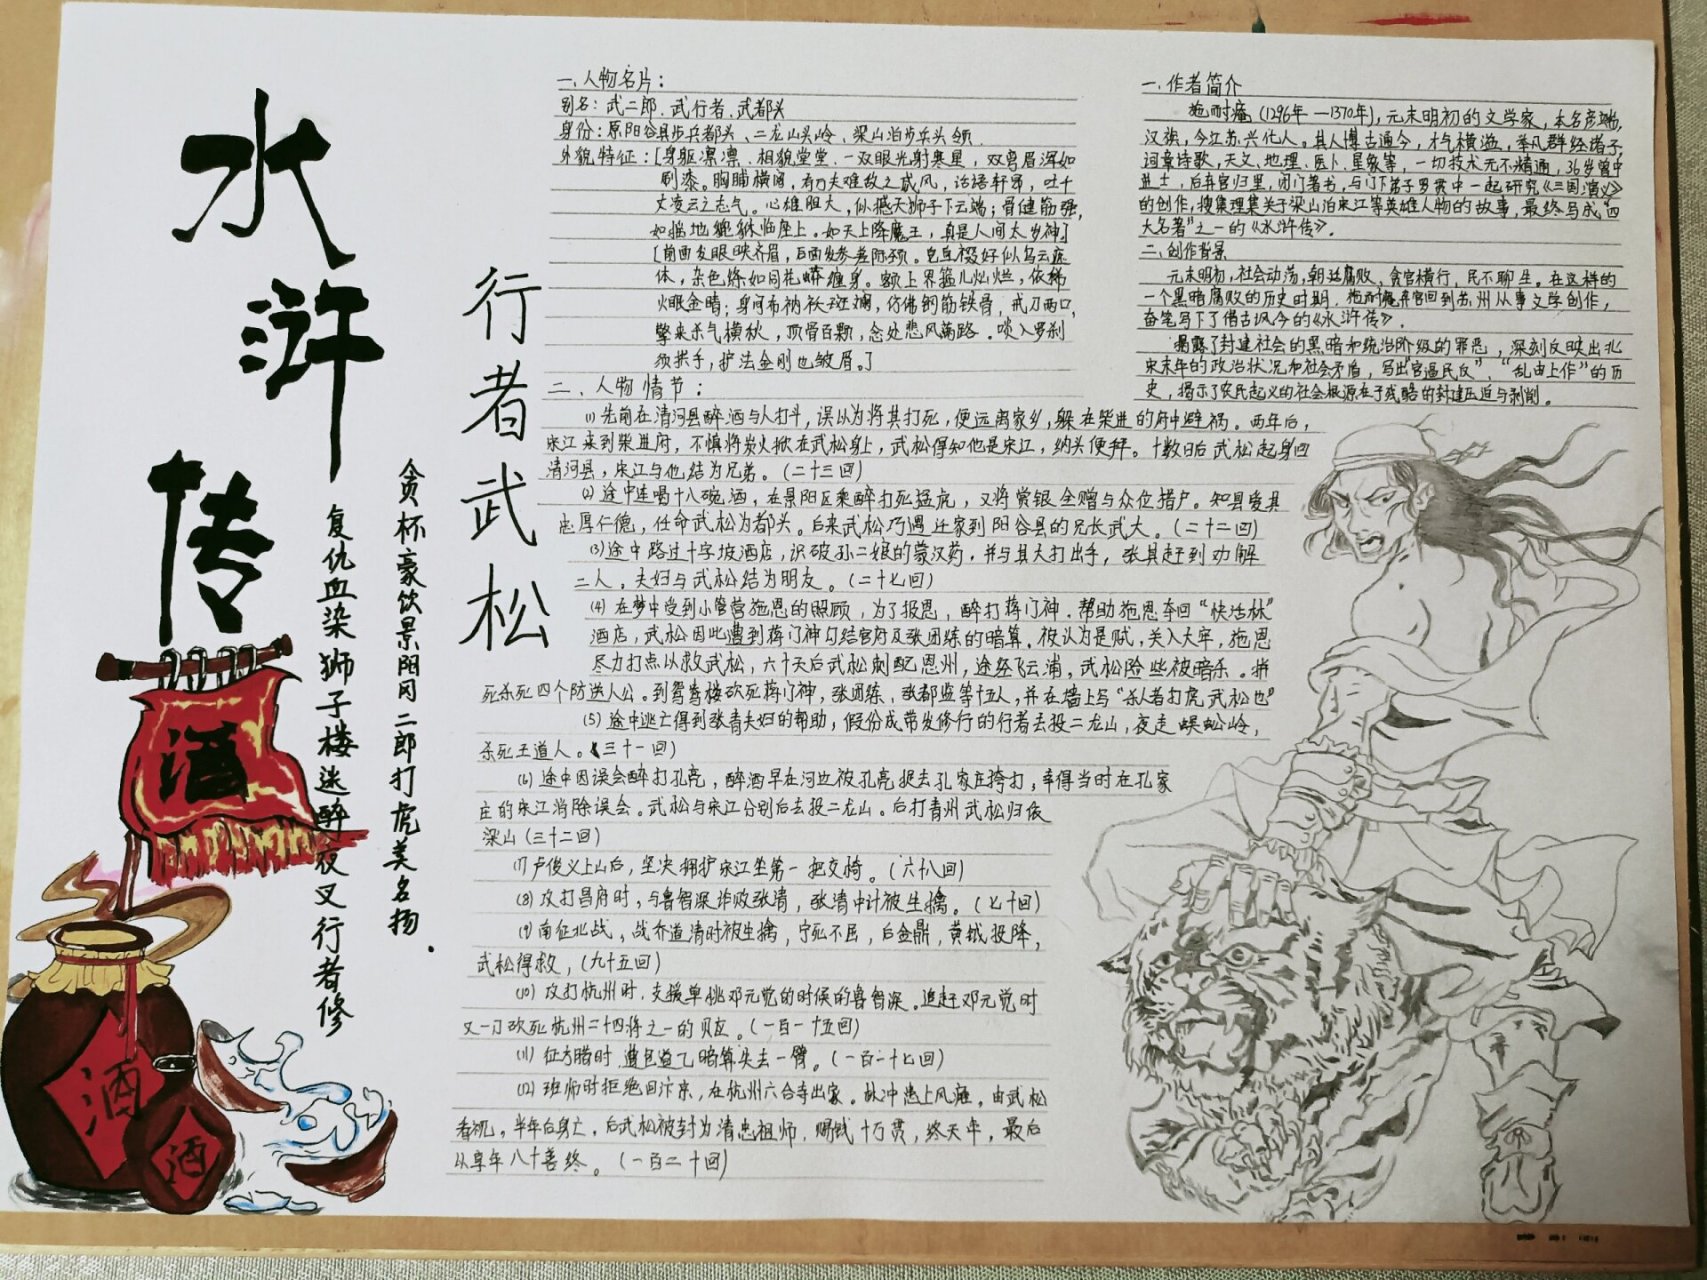 水浒传
行者武松
贪杯豪饮景阳冈二郎打虎美名扬
复仇血染狮子楼逃醉夜叉行者修
酒
酒
酒
一、人物名片：
别名：武二郎、武行者、武都头
身份：原阳谷县步兵都头、二龙山头岭、梁山泊步兵头领
外貌特征：[身躯凛凛、相貌堂堂、一双眼光射寒星，双弯眉浑如
刷漆。胸脯横阔，有万夫难敌之威风，话语轩昂，吐千
丈凌云之志气。心雄胆大，似撼天狮子下云端；骨健筋强，
如摇地貔貅临座上。如天上降魔王，真是人间太岁神]
[前面发眼映齐眉，后面发参差际颈。皂直裰好似乌云遮
体，杂色绦如同花蟒缠身。额上界箍儿灿烂，依稀
火眼金晴；身间布衲袄斑斓，仿佛铜筋铁骨，戒刀两口，
擎来杀气横秋，顶骨百颗，念处悲风满路．啖人罗刹
须拱手，护法金刚也皱眉。]
二、人物情节：
(1)先前在清河县醉酒与人打斗，误以为将其打死，便远离家乡，躲在柴进的府中避祸。两年后，
宋江来到柴进府，不慎将炭火掀在武松身上，武松得知他是宋江，纳头便拜。十数日后武松起身回
清河县，宋江与他结为兄弟。(二十三回)
(2)途中连喝十八碗酒，在景阳区乘醉打死猛虎，又将赏银全赠与众位猎户。知县爱其
忠厚仁德，任命武松为都头。后来武松巧遇迁家到阳谷县的兄长武大。(二十二回)
(3)途中路过十字坡酒店，识破孙二娘的蒙汉药，并与其大打出手，张其赶到劝解
二人，夫妇与武松结为朋友。(二十七回)
(4)在梦中受到小管营施恩的照顾，为了报恩，醉打蒋门神．帮助施恩夺回“快活林”
酒店，武松因此遭到蒋门神勾结官府及张团练的暗算．被认为是贼，关入大牢，施恩
尽力打点以救武松，六十天后武松刺配恩州，途经飞云浦，武松险些被暗杀．拼
死杀死四个防送人公．到鸳鸯楼砍死蒋门神，张团练、张都监等十五人，并在墙上写“杀人者打虎武松也”
(5)途中逃亡得到张青夫妇的帮助，假份成带发修行的行者去投二龙山，夜走蜈蚣岭，
杀死王道人。(三十一回)
(6)途中因误会醉打孔亮，醉酒早在河边被孔亮捉去孔家庄拷打，幸得当时在孔家
庄的宋江消除误会。武松与宋江分别后去投二龙山．后打青州武松归依
梁山(三十二回)
(7)卢俊义上山后，坚决拥护宋江坐第一把交椅。(六十八回)
(8)攻打昌府时，与鲁智深诈败张清，张清中计被生擒。(七十回)
(9)南征北战，战乔道清时被生擒，宁死不屈，后金鼎，黄钺投降，
武松得救，(九十五回)
(10)攻打杭州时．支援单挑邓元觉的时候的鲁智深．追赶邓元觉时
又一刀砍死杭州二十四将之一的贝应。(一百一十五回)
(11)征方腊时，遭包道乙暗算失去一臂。(一百一十七回)
(12)班师时拒绝回汴京，在杭州六合寺出家．林冲患上风瘫．由武松
看视，半年后身亡，后武松被封为清忠祖师．赐钱十万贯，终天年，最后
以享年八十善终。(一百二十回)
一、作者简介
施耐庵(1296年—1370年)，元末明初的文学家，本名彦端，
汉族，今江苏兴化人。其人博古通今，才气横溢，举凡群经诸子，
词章诗歌，天文、地理、医卜、星象等，一切技术无不精通，36岁曾中
进士，后弃官归里，闭门著书，与门下弟子罗贯中一起研究《三国演义》
的创作，搜集理集关于梁山泊宋江等英雄人物的故事，最终写成“四
大名著”之一的《水浒传》．
二、创作背景
元末明初，社会动荡，朝廷腐败，贪官横行，民不聊生。在这样的
一个黑暗腐败的历史时期，施耐庵弃官回到苏州从事文学创作，
奋笔写下了借古讽今的《水浒传》．
揭露了封建社会的黑暗和统治阶级的罪恶，深刻反映出北
宋末年的政治状况和社会矛盾，写出“官逼民反”、“乱由上作”的历
史，揭示了农民起义的社会根源在于残酷的封建压迫与剥削。